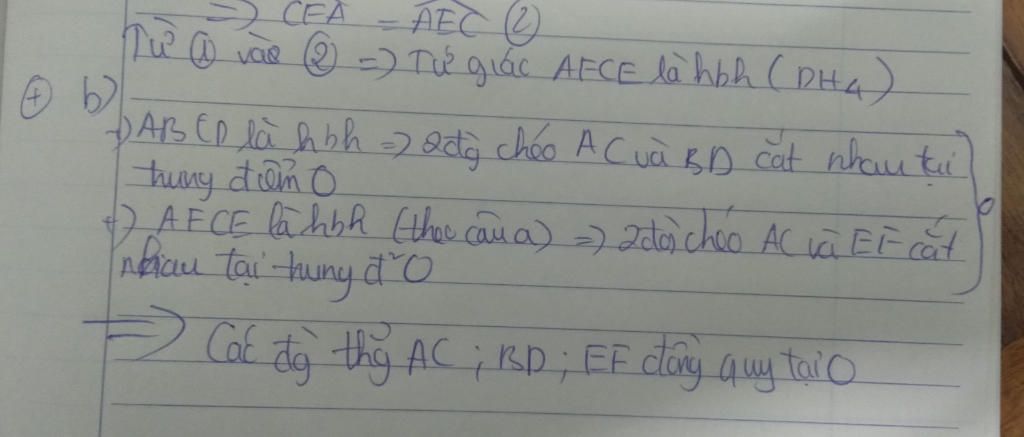 => CFA = AEC ②
Từ ① và ② => Tứ giác AFCE là hbh (DH4)
+ b)
+) ABCD là hbh => 2 đg chéo AC và BD cắt nhau tại
trung điểm O
+) AFCE là hbh (theo câu a) => 2 đg chéo AC và EF cắt
nhau tại trung đ² O
=> Các đg thg AC ; BD ; EF đồng quy tại O